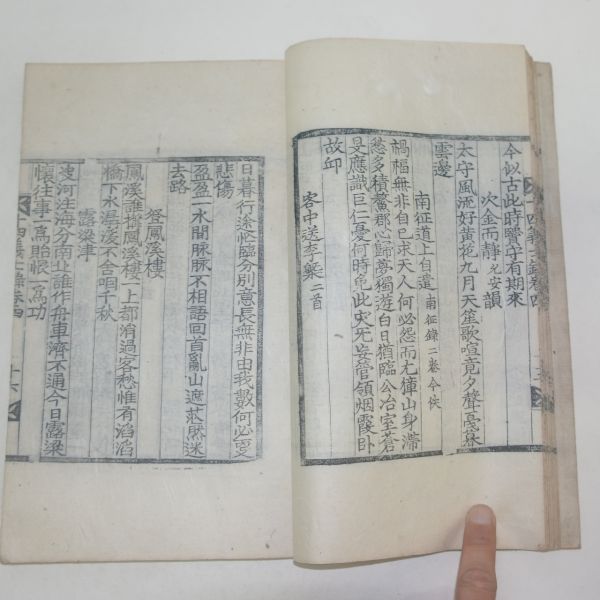 今似古此時賢守有期來
次金而靜允安韻
太守風流好黃花九月天笙歌喧竟夕聲戞暮
雲邊
南征道上自遣 南征錄二卷今佚
禍福無非自已求天人何必怨而尤獐山身滯
愁多積蓬郡心歸夢獨遊白日猶臨公冶室蒼
旻應識巨仁憂何時免此灾旡妄管領烟霞臥
故邱
客中送李 二首
日暮行途忙臨分別意長無非由我數何必更
悲傷
盈盈一水間脉脉不相語回首亂山遮茫然迷
去路
登鳳溪樓
鳳溪誰撤鳳溪樓一上都消過客愁惟有滔滔
橋下水潺湲不舍咽千秋
露梁津
凌河注海分南北誰作舟車濟不通今日露梁
懷往事一爲貽恨一爲功
四義士錄卷四
十六